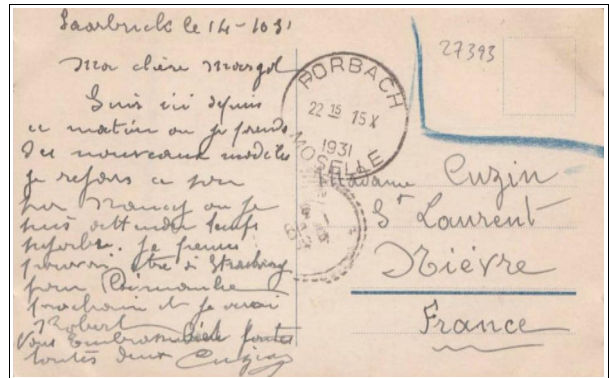 Saarbruck le 14-1031
Ma chère Margot
Suis ici depuis
ce matin ou je prends
des nouveaux modèles
je repars ce soir
pour Nancy ou je
suis attendu
je pense
pouvoir être à Strasbourg
pour Dimanche
prochain et je
Robert
Vous Embrasse toutes
toutes deux Cuzin
27393
FORBACH
22 15 15 X
1931
MOSELLE
Madame Cuzin
St Laurent
Nièvre
France